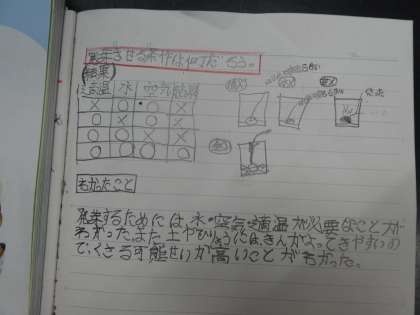 発芽させる条件は何だろう。
結果
適温 水 空気 結果
× ○ ○ ×
○ × ○ ×
○ ○ × ×
○ ○ ○ ○
わかったこと
発芽するためには、水・空気・適温が必要なことが
わかった。また土やひりょうには、きんがよってきやすいの
で、くさる可能せいが高いことがわかった。